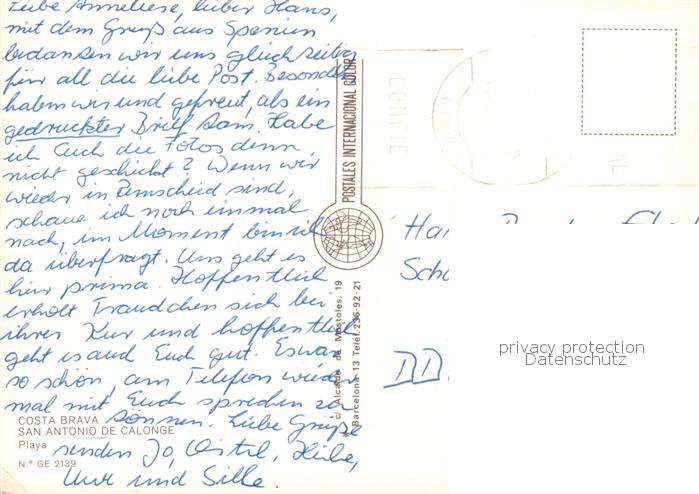 Liebe Anneliese, lieber Hans,
mit dem Gruß aus Spanien
bedanken wir uns gleichzeitig
für all die liebe Post. Besonders
haben wir uns gefreut, als ein
gedruckter Brief kam. Habe
ich Euch die Fotos denn
nicht geschickt? Wenn wir
wieder in Remscheid sind,
schaue ich noch einmal
nach, im Moment bin ich
da überfragt. Uns geht es
hier prima. Hoffentlich
erholt Traudchen sich bei
ihrer Kur und hoffentlich
geht es auch Euch gut. Es war
so schön, am Telefon wieder
mal mit Euch sprechen zu
können. Liebe Grüße
senden Jo,
und Silke.
COSTA BRAVA
SAN ANTONIO DE CALONGE
Playa
N.° GE 2139
POSTALES INTERNACIONAL COLOR
c/ Alcalde de Mostoles, 19
Barcelona-13 Telef. 236-92-21
CONFIE
DD
privacy protection
Datenschutz